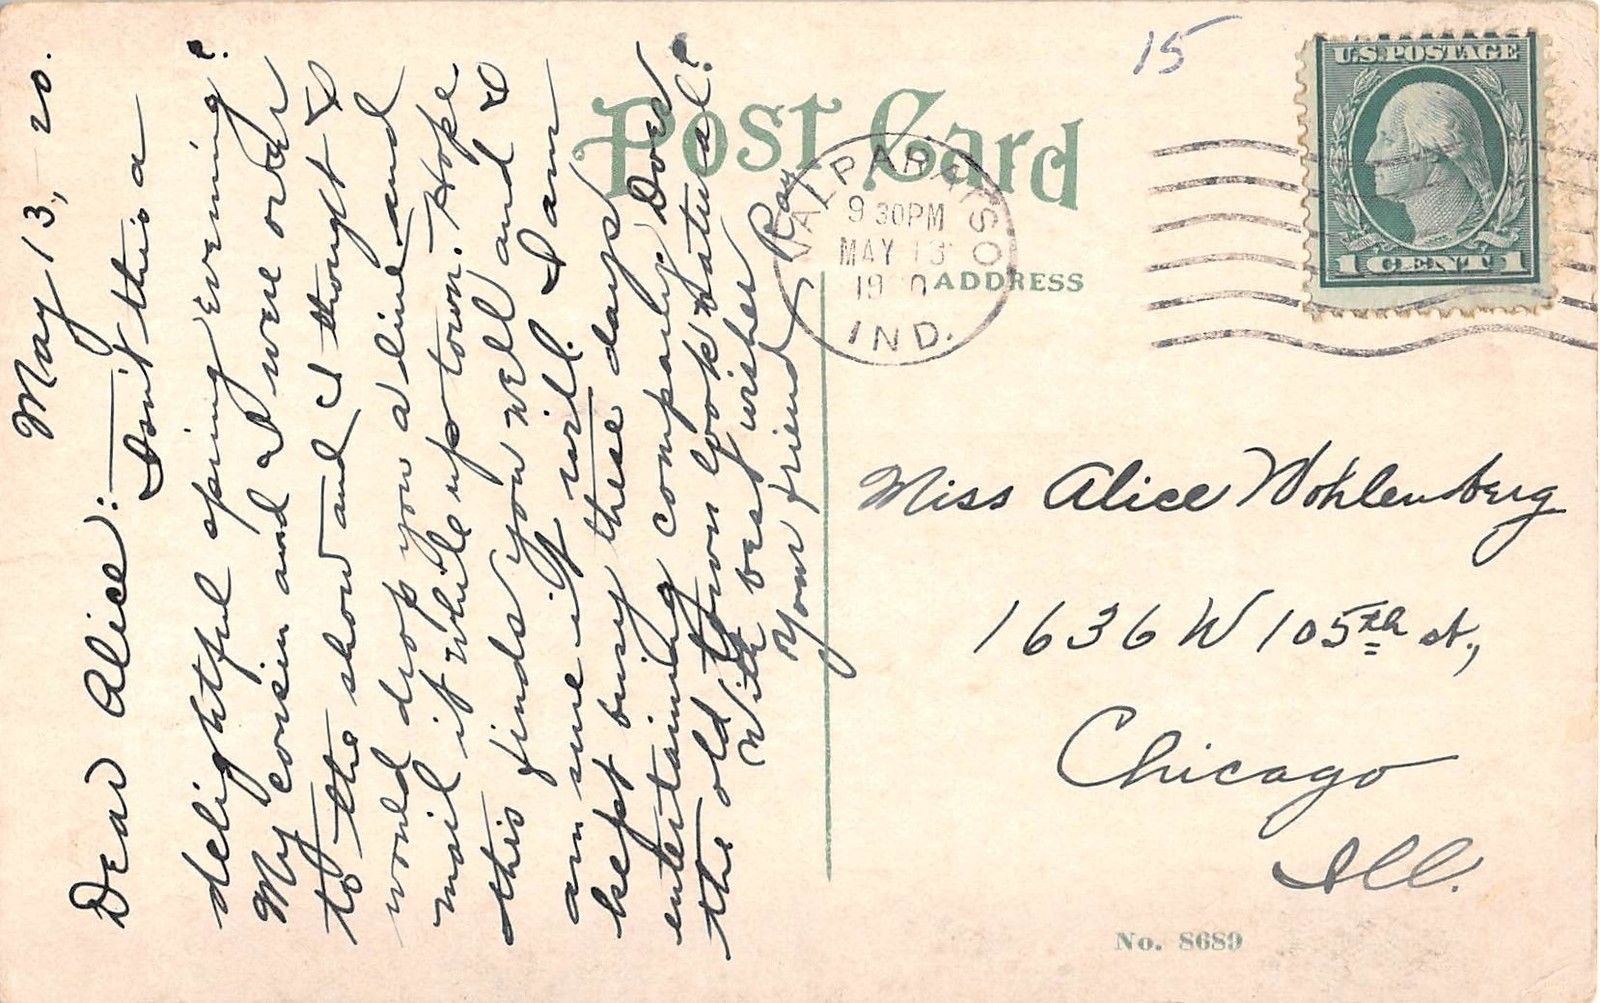 May 13, 20.
Dear Alice:—
Isn't this a
delightful spring evening?
My cousin and I were over
to the show and I thought I
would drop you a line and
mail it while up town. Hope
this finds you well and I
am sure it will. I am
kept busy these days
entertaining company. Does
the old town look natural?
With best wishes
Your friend, Ray
15
Post Card
ADDRESS
U.S. POSTAGE
1 CENT 1
VALPARAISO
9 30PM
MAY 13
19 0
IND.
Miss Alice Wohlenberg
1636 W 105th st.,
Chicago
Ill.
No. 8689